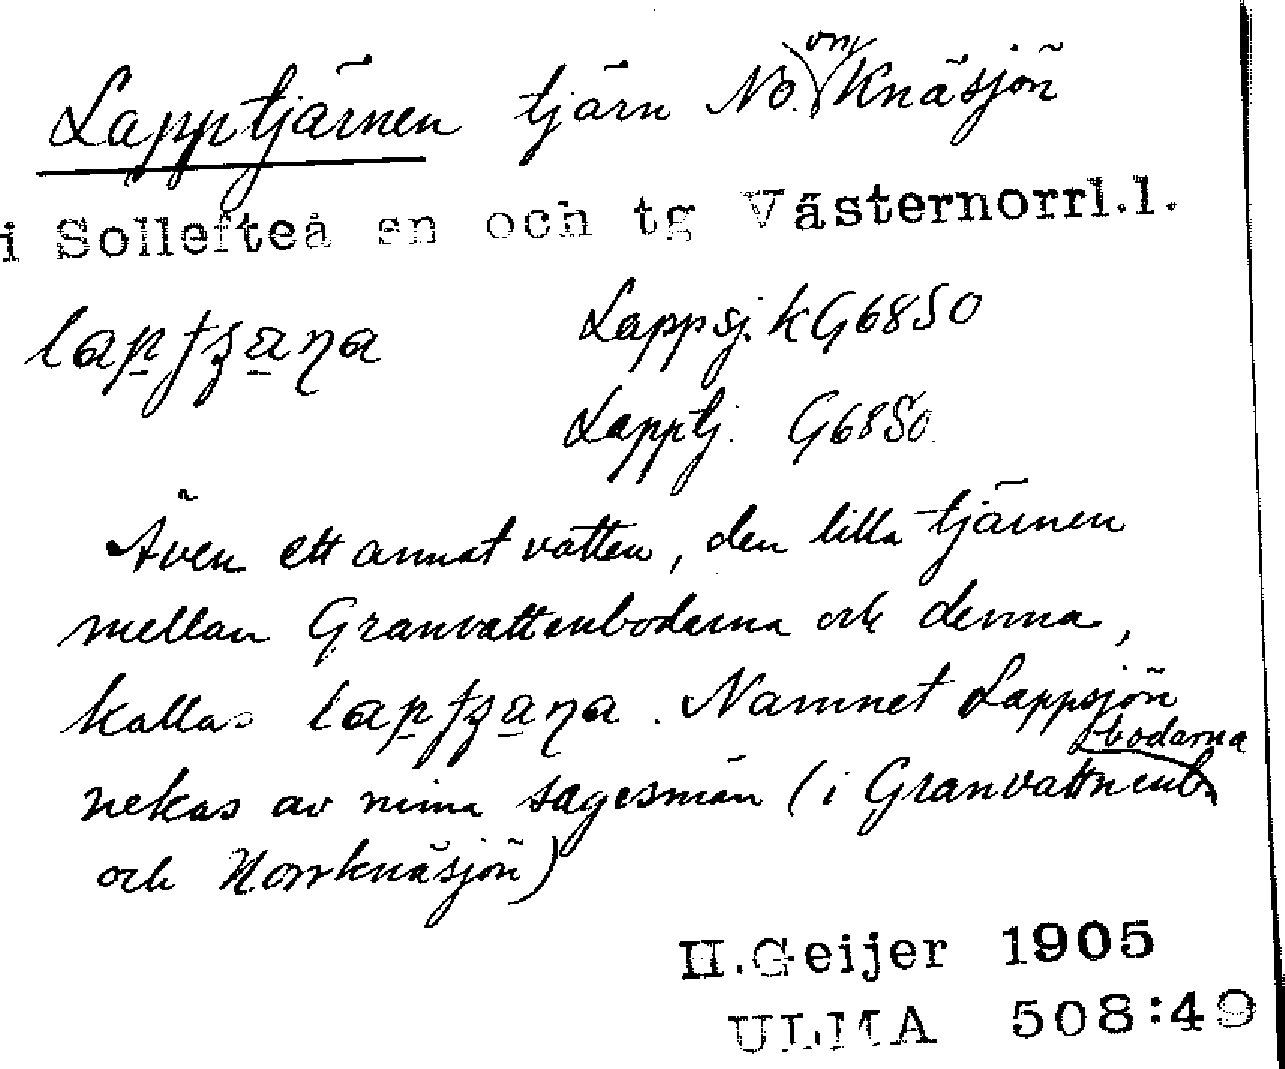 Lapptjärnen tjärn NO. om Knäsjön
i Sollefteå sn och tg Västernorrl.l.
Lappsj. k G6850
Lapptj. G6850.
Även ett annat vatten, den lilla tjärnen
mellan Granvattenbodarna och denna,
kallas . Namnet Lappsjön
nekas av mina sagesmän (i Granvattnenbodarna
och Norrknäsjön)
H.Geijer 1905
ULMA 508:49